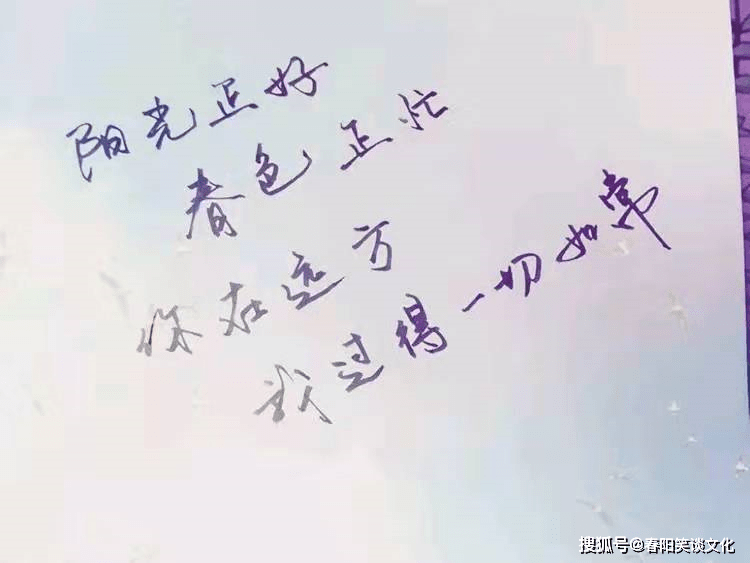 阳光正好
春色正忙
你在远方
我过得一切如常
搜狐号@春阳笑谈文化